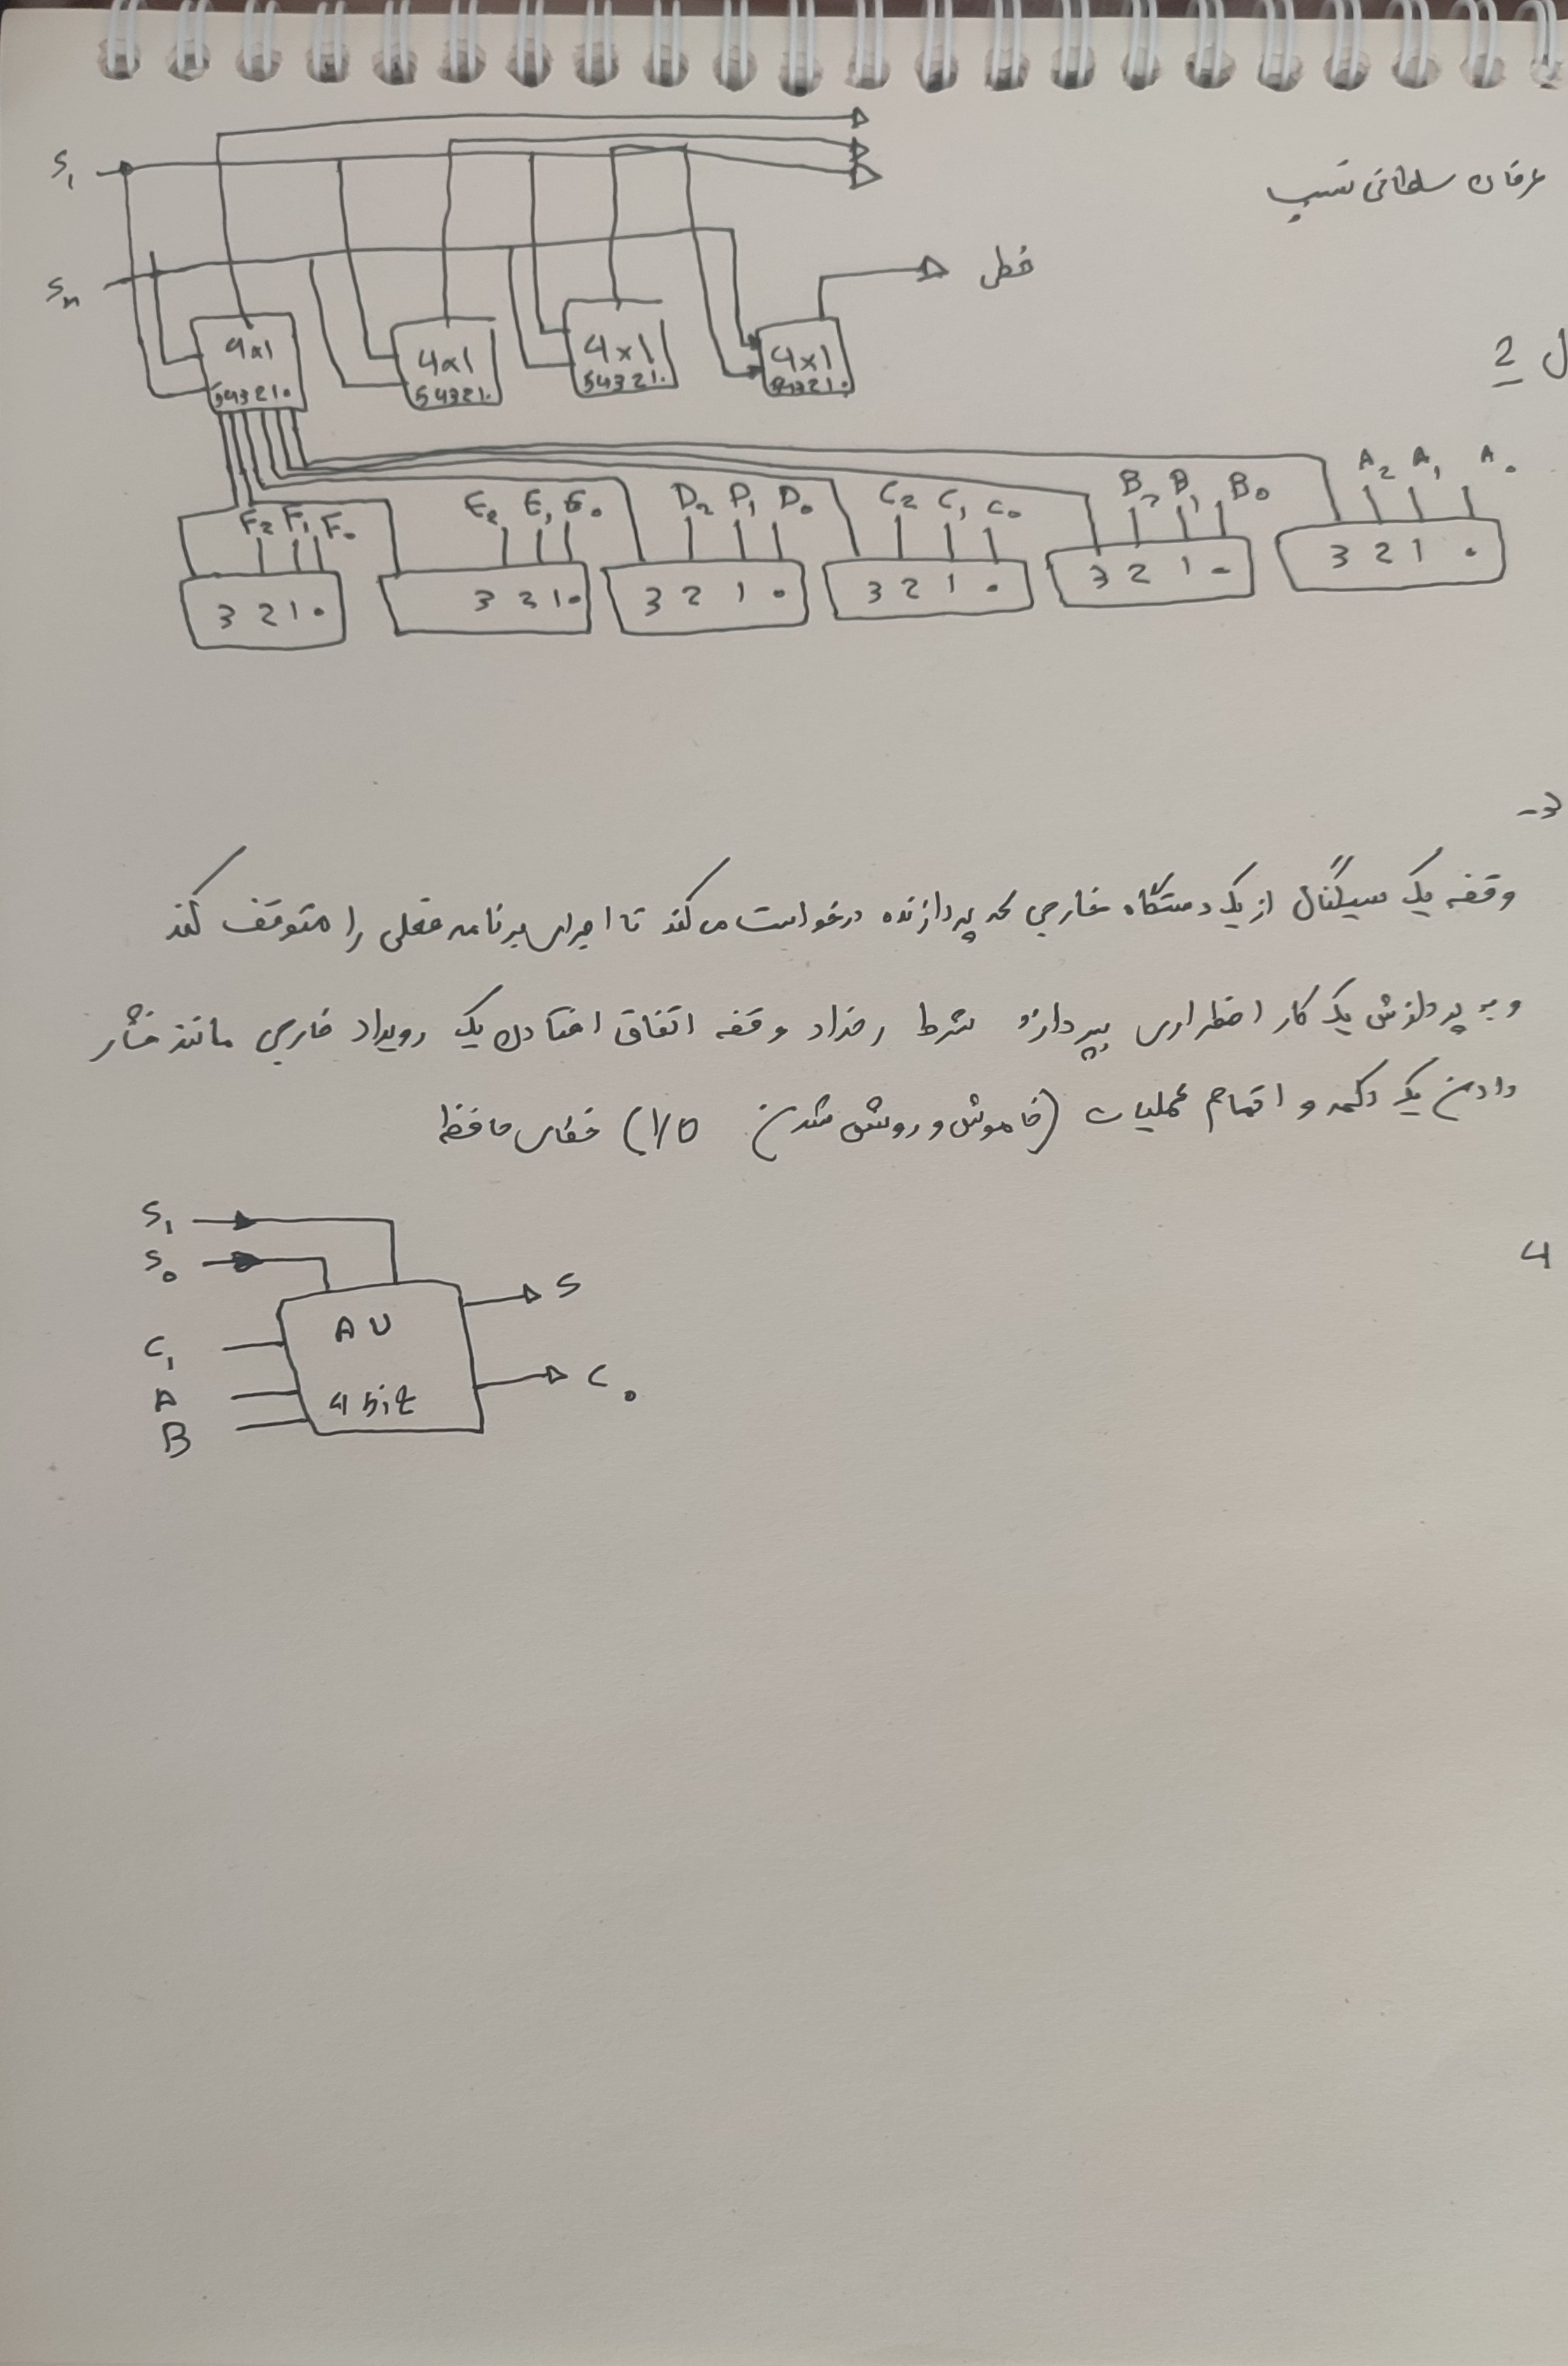 عرفان سلطانی نسب
S1
Sn
خطی
ل 2
4x1
543210
4x1
543210
4x1
543210
4x1
3210
F2 F1 F0
E2 E1 E0
D2 D1 D0
C2 C1 C0
B2 B1 B0
A2 A1 A0
3 2 1 0
3 2 1 0
3 2 1 0
3 2 1 0
3 2 1 0
3 2 1 0
3-
وقفه یک سیگنال از یک دستگاه خارجی که پردازنده درخواست می کند تا اجرای برنامه فعلی را متوقف کند
و به پردازش یک کار اضطراری بپردازد شرط رخداد وقفه اتفاق افتادن یک رویداد خارجی مانند فشار
دادن یک دکمه و اتمام عملیات (خاموش و روشن شدن I/O) خطای حافظه
4
S1
S0
C1
A
B
AU
4 bit
S
C0